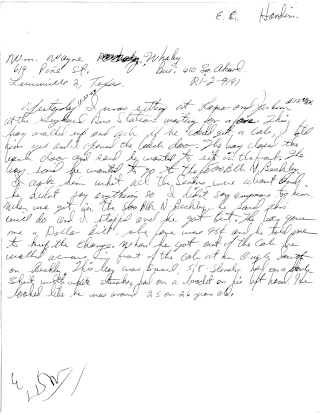 E. R. Hardin
Wm. Wayne Whaley
619 Pine St. Bus: 610 So. Akard
Lewisville 2, Texas RI-2-9191
Yesterday I was sitting at Lamar and Jackson
at the Greyhound Bus Station waiting for a fare. This
boy walked up and ask if he could get a cab, I told
him yes and I opened the back door. The boy closed the
back door and said he wanted to sit in the front. The
boy said he wanted to go to the 500 Blk N. Beckley.
I ask him what all the sirens were about and
he didn't say anything so I didn't say anymore to him.
When we got in the 500 Blk N. Beckley he said this
will do and I stopped and he got out. The boy gave
me a Dollar bill, the fare was 95¢ and he told me
to keep the change. When he got out of the cab he
walked across in front of the cab at an angle south
on Beckley. This boy was small, 5/8 slender, had on a dark
shirt with white streaks, had on a bracelet on his left hand. He
looked like he was around 25 or 26 years old.